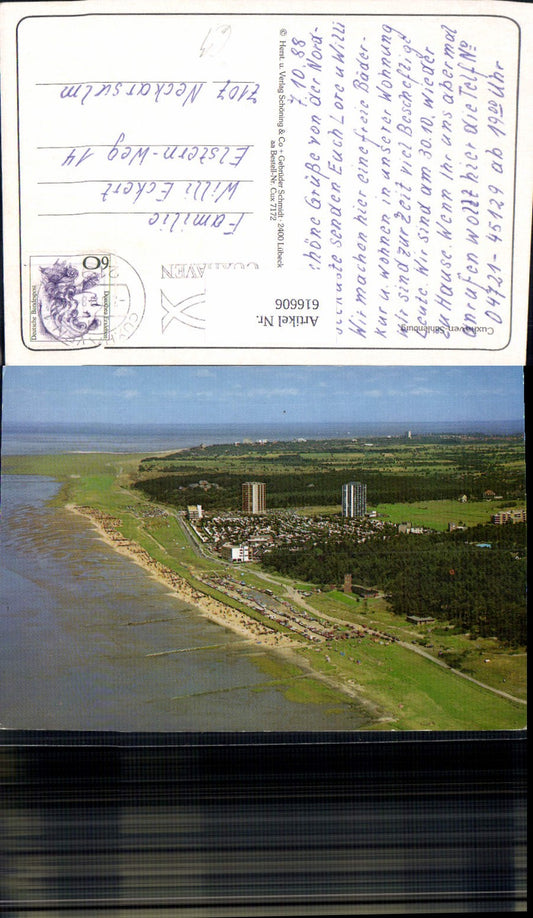 7.10.88
schöne Grüße von der Nord-
seeküste senden Euch Lore u Willi
Wir machen hier eine freie Bäder-
kur u. wohnen in unserer Wohnung
Wir sind zur Zeit viel Bescheftige
Leute. Wir sind am 30.10. wieder
zu Hause. Wenn Ihr uns abermal
anrufen wollt hier die Telf. No
04721-45129 ab 19 00 Uhr
Cuxhaven-Sahlenburg
© Herst. u. Verlag Schöning & Co + Gebrüder Schmidt · 2400 Lübeck
aa Bestell-Nr. Cux 7172
Familie
Willi Eckert
Elstern-Weg 14
7107 Neckarsulm
60
Deutsche Bundespost
CUXHAVEN
Artikel Nr.
616606